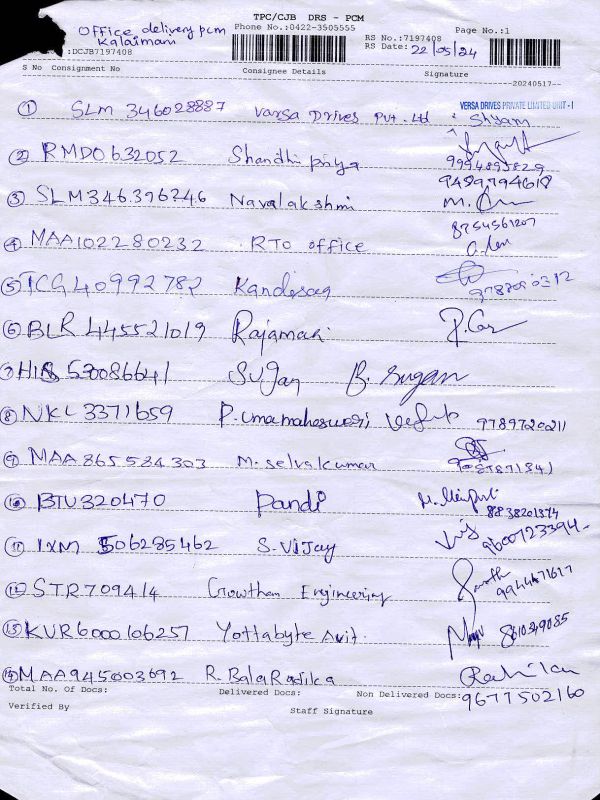 TPC/CJB DRS - PCM
Office delivery pcm
Phone No.:0422-3505555
Page No.:1
Kalaimani
RS No.:7197408
:DCJB7197408
RS Date: 22/05/24
S No Consignment No Consignee Details Signature
--20240517--
VERSA DRIVES PRIVATE LIMITED UNIT - I
1 SLM 346028887 Varsa Drives Pvt. Ltd Shyam
2 RMD0632052 Shandhi priya 9994895829
9489794618
3 SLM346396746 Navalakshmi
8754561207
4 MAA102280232 RTO office
5 TCG40992782
6 BLR 445521019 Rajamari
7 53086641 Sujan B. Sugan
8 NKL 3371659 P. Umamaheswari 9789720211
9 MAA865584303 M. Selvakumar
10 BTU320470 Pandi
8838201374
11 IXM 506285462 S. Vijay 9600723394
12 STR709414 Gowthan Engineering
9944471617
13 KUR6000106257 Yottabyte Avit.
14 MAA945003692 R. Bala Radika
Total No. Of Docs: Delivered Docs: Non Delivered Docs:
9677502160
Verified By Staff Signature